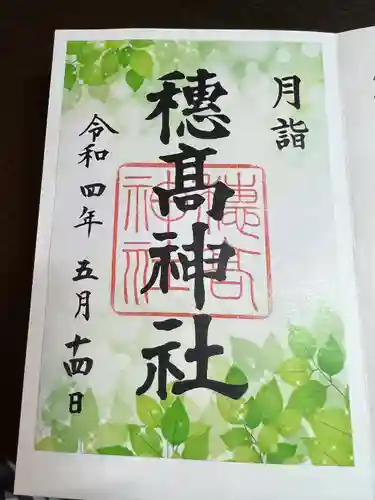 月詣
穂髙神社
穂髙
神社
令和四年 五月十四日